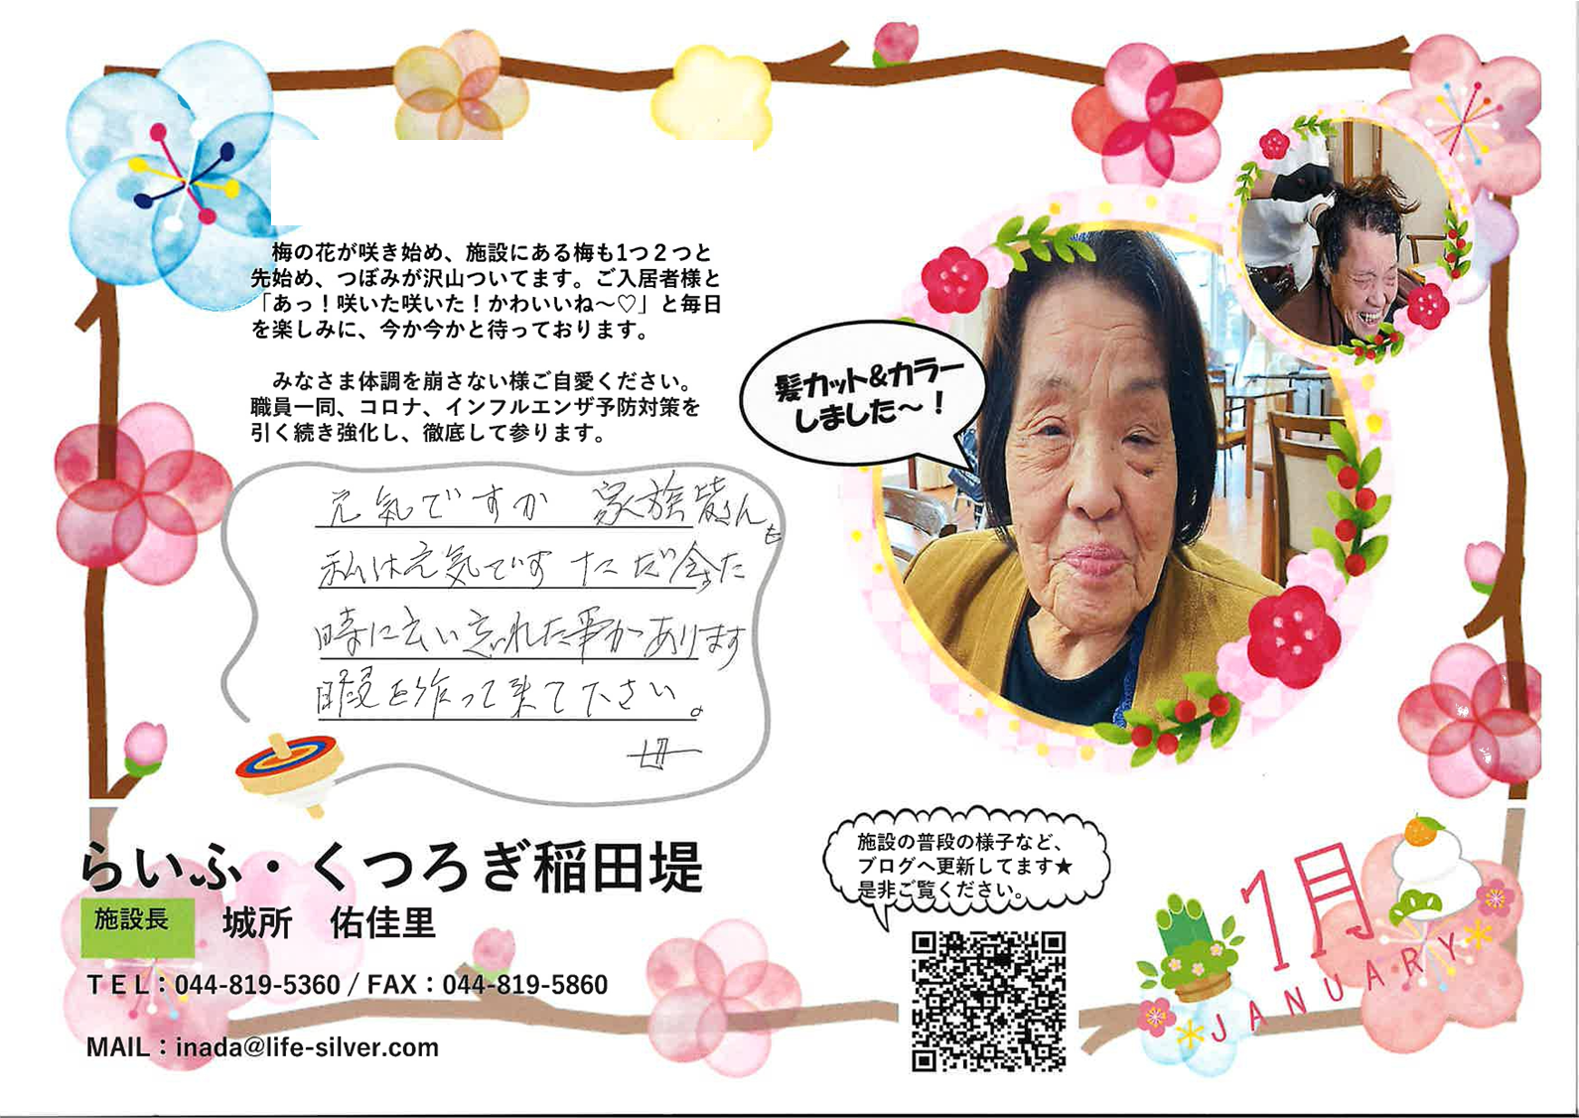 梅の花が咲き始め、施設にある梅も1つ２つと
先始め、つぼみが沢山ついてます。ご入居者様と
「あっ！咲いた咲いた！かわいいね～♡」と毎日
を楽しみに、今か今かと待っております。
みなさま体調を崩さない様ご自愛ください。
職員一同、コロナ、インフルエンザ予防対策を
引く続き強化し、徹底して参ります。
元気ですか 家族皆さんも
私は元気です ただ会った
時に云い忘れた事があります
暇を作って来て下さい。
母
髪カット&カラー
しました～！
らいふ・くつろぎ稲田堤
施設長 城所 佑佳里
ＴＥＬ：044-819-5360 / FAX：044-819-5860
MAIL：inada@life-silver.com
施設の普段の様子など、
ブログへ更新してます★
是非ご覧ください。
1月
JANUARY